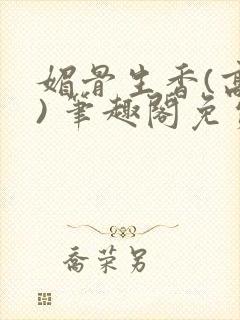 媚骨生香(高
)笔趣阁免
喬荣另